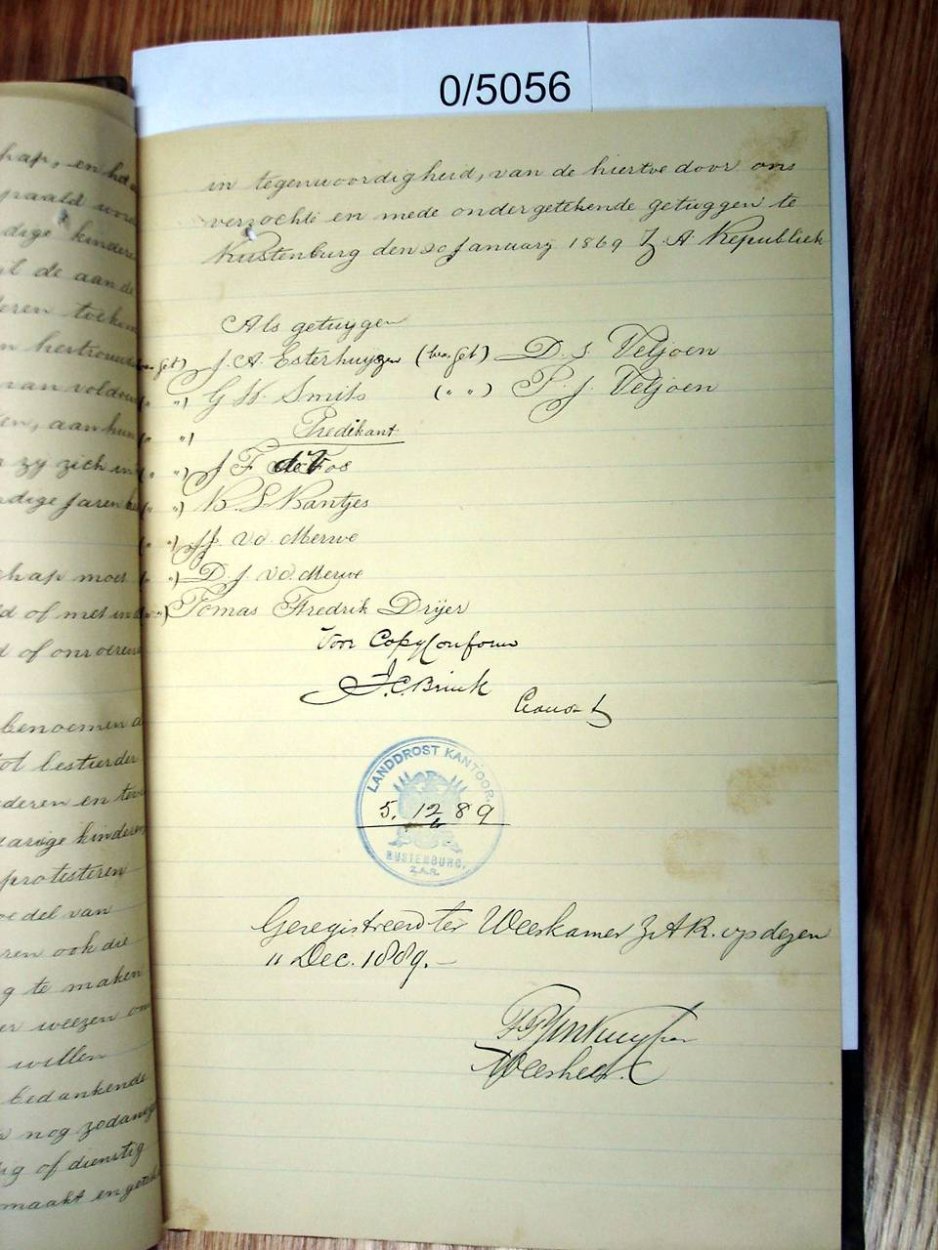 0/5056
hap, en het
paald word
dige kindere
il de aan de
eren toekom
n hertrouw
van voldoen
en, aan hun
zy zich in
dige Jaren
chap moet
d of met in
d of onroeren
benoemen
tot bestierder
deren en
jarige kinderen
protesteren
oedel van
ren ook die
g te maken
er weezen om
willen
bedankende
nog zodanig
ig of dienstig
maakt en get
in tegenwoordigheid, van de hiertoe door ons
verzochte en mede ondergetekende getuggen te
Rustenburg den 20 January 1869 Z. A. Republiek
Als getuggen
(was get) J. A. Esterhuyzen (was get) D. J. Veljoen
(" ") G W. Smits (" ") P. J. Veljoen
(" ") Predikant
(" ") J F de Vos
(" ") K. S. Kantjes
(" ") J. v d Merwe
(" ") D J. v d Merwe
(" ") Tomas Fredrik Drijer
Voor Copy Conform
J. C. Brink
LANDDROST KANTOOR
5. 12 89
RUSTENBURG.
Z.A.R.
Geregistreerd ter Weeskamer Z A R. op dezen
11 Dec. 1889. —
Weesheer.